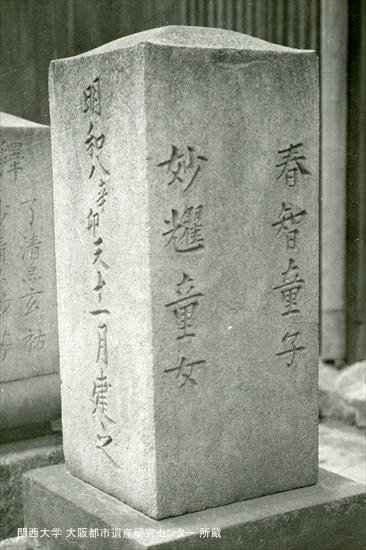 春智童子
妙耀童女
明和八辛卯天十一月建之
釋
了清
関西大学 大阪都市遺産研究センター 所蔵